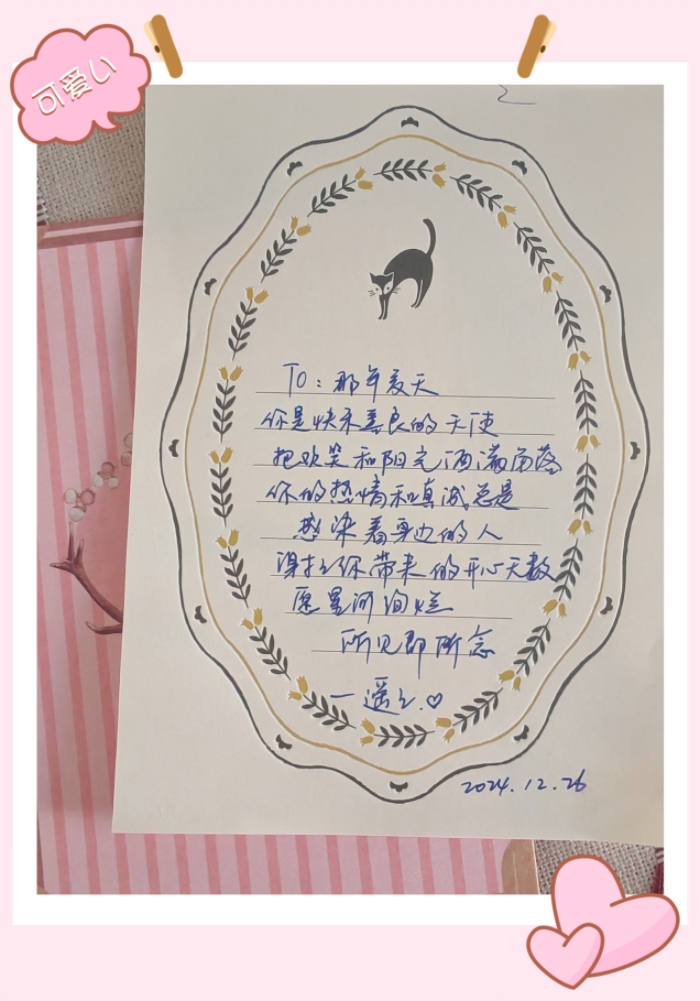 可爱い
To：那年夏天
你是快乐善良的天使
把欢笑和阳光洒满角落
你的热情和真诚总是
感染着身边的人
谢谢你带来的开心天数
愿星河绚烂
所见即所念
一遥之♡
2024.12.26